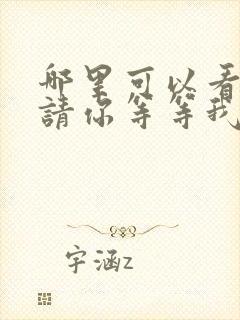 哪里可以看
請你等等我
字涵z